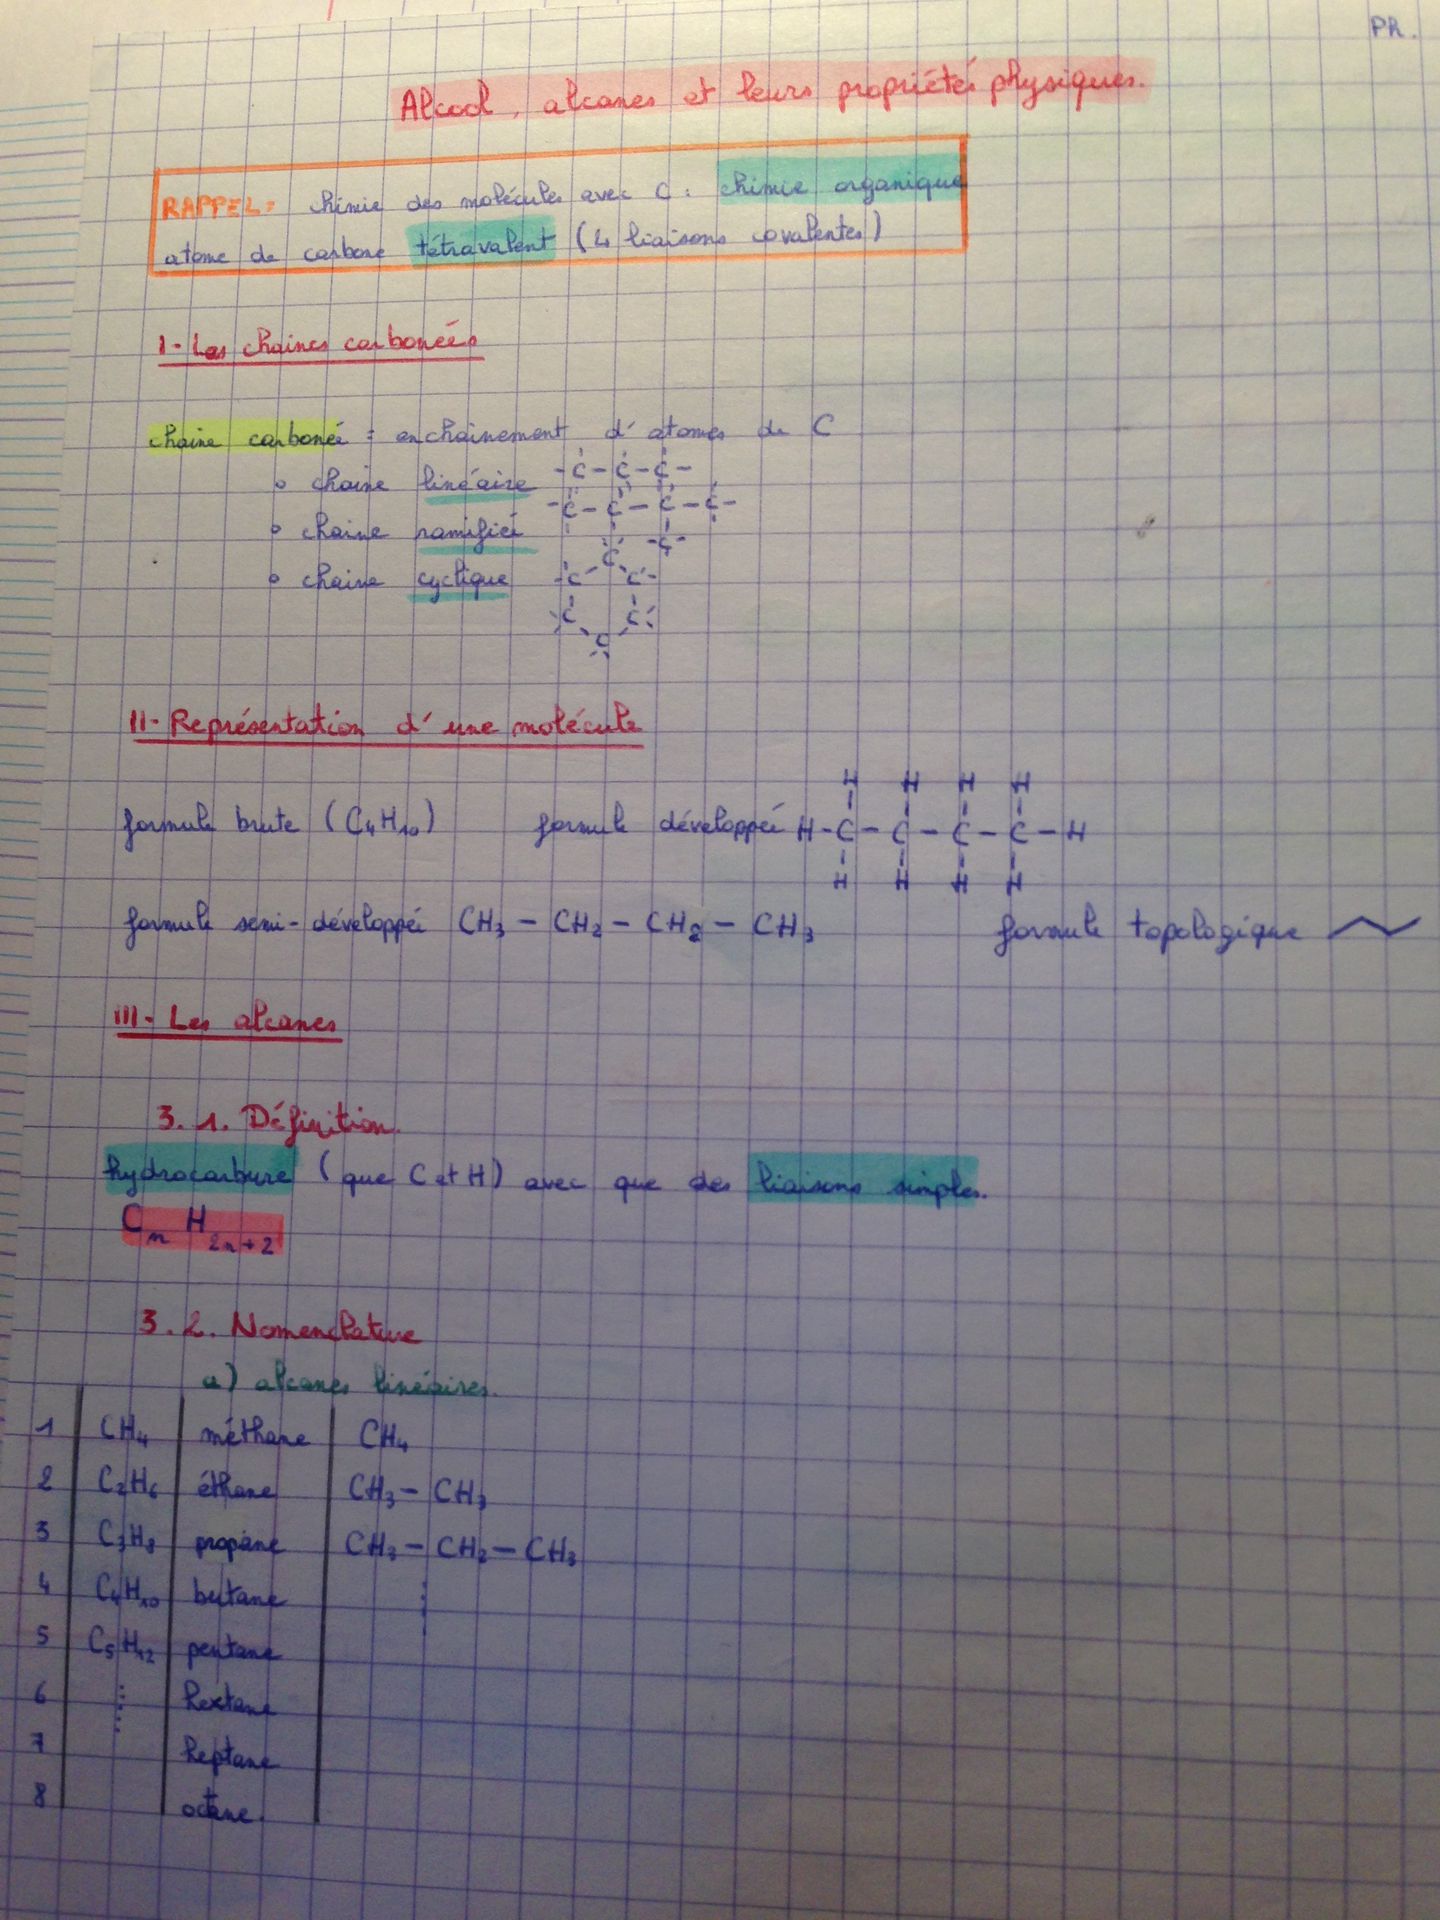 PR.
Alcool, alcanes et leurs propriétés physiques.
RAPPEL: chimie des molécules avec C : chimie organique
atome de carbone tétravalent (4 liaisons covalentes)
I- Les chaines carbonées
chaine carbonée = enchainement d'atomes de C
o chaine linéaire -C-C-C-
o chaine ramifiée -C-C-C-C-
-C-
o chaine cyclique C C C C C C
II- Représentation d'une molécule
H H H H
formule brute (C4H10) formule développée H-C-C-C-C-H
H H H H
formule semi-développée CH3-CH2-CH2-CH3 formule topologique
III- Les alcanes
3.1. Définition.
hydrocarbure (que C et H) avec que des liaisons simples.
Cn H2n+2
3.2. Nomenclature
a) alcanes linéaires.
1 CH4 méthane CH4
2 C2H6 éthane CH3-CH3
3 C3H8 propane CH3-CH2-CH3
4 C4H10 butane
5 C5H12 pentane
6 hextane
7 heptane
8 octane.